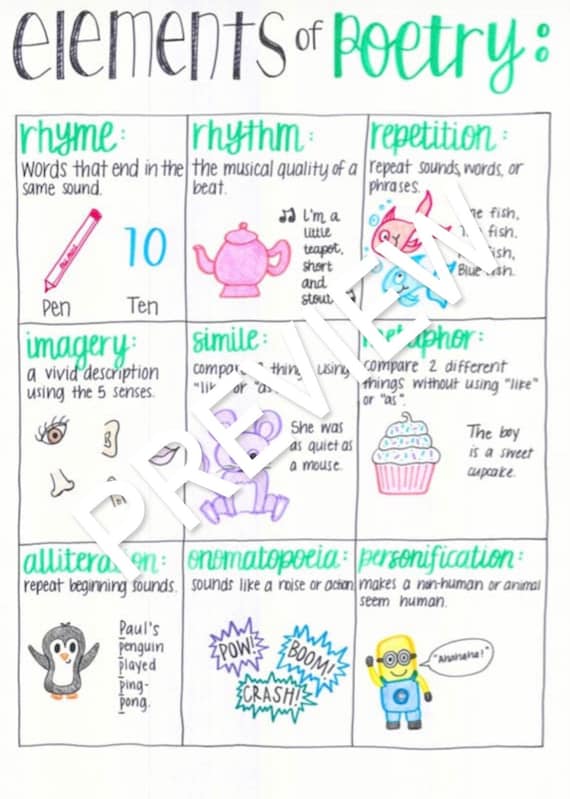 elements of Poetry:
rhyme:
Words that end in the
same sound.
10
Pen
Ten
rhythm:
the musical quality of a
beat.
I'm a
little
teapot,
short
and
stout.
repetition:
repeat sounds, words, or
phrases.
fish,
fish,
fish,
Blue fish.
imagery:
a vivid description
using the 5 senses.
simile:
compare 2 things using
"like" or "as".
She was
as quiet as
a mouse.
metaphor:
compare 2 different
things without using "like"
or "as".
The boy
is a sweet
cupcake.
alliteration:
repeat beginning sounds.
Paul's
penguin
played
ping-
pong.
onomatopoeia:
sounds like a noise or action
POW!
BOOM!
CRASH!
personification:
makes a non-human or animal
seem human.
"Ahahaha!"
PREVIEW